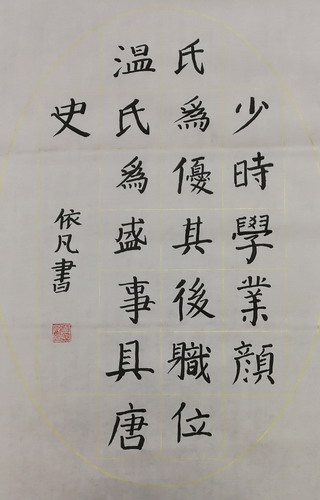 少時學業顔
氏為優其後職位
温氏為盛事具唐
史
依凡書